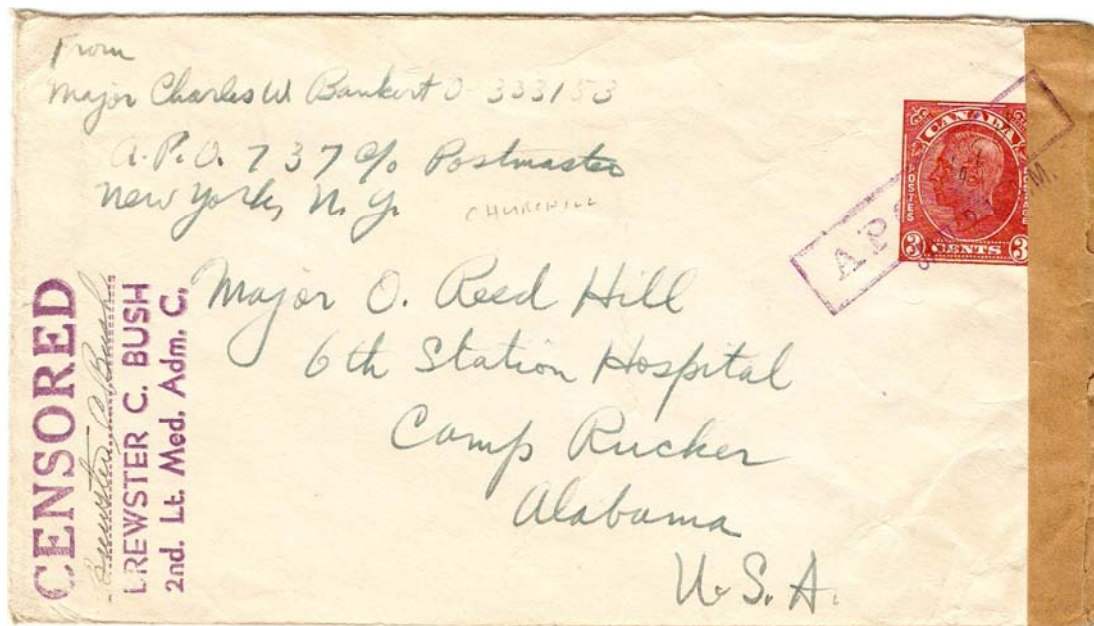 From
Major Charles W. Bankert O-333153
A.P.O. 737 c/o Postmaster
New York, N.Y.
CHURCHILL
CANADA
POSTES
POSTAGE
3 CENTS 3
AP
M.
Major O. Reed Hill
6th Station Hospital
Camp Rucker
Alabama
U.S.A.
CENSORED
Brewster C. Bush
LREWSTER C. BUSH
2nd. Lt. Med. Adm. C.